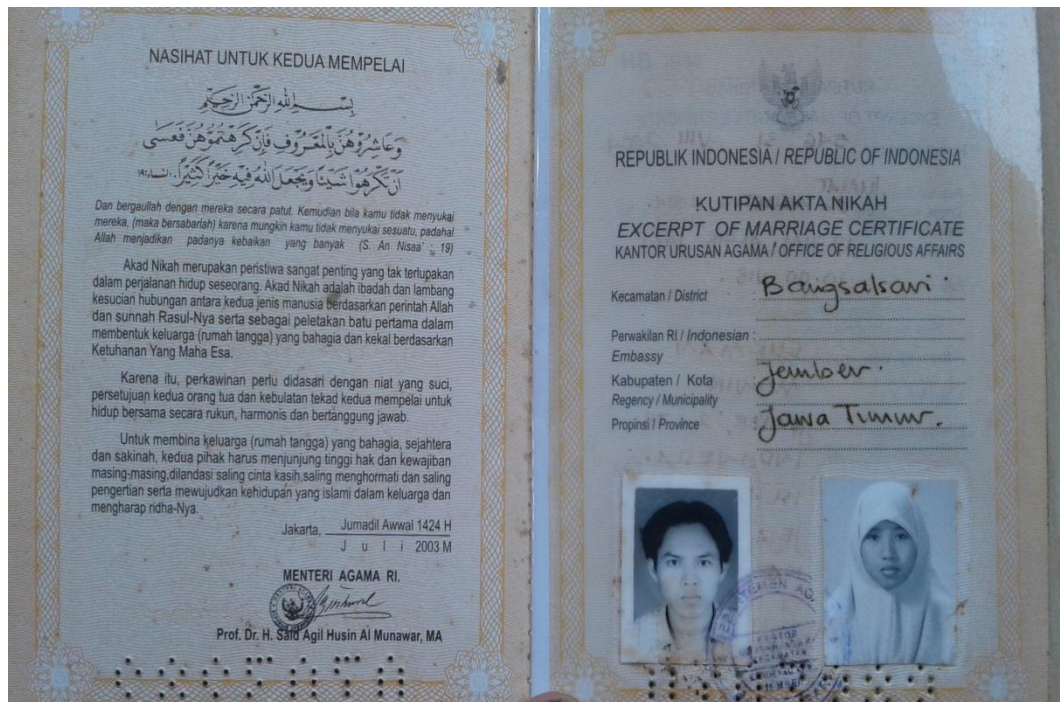 NASIHAT UNTUK KEDUA MEMPELAI
بِسْمِ اللهِ الرَّحْمٰنِ الرَّحِيْمِ
وَعَاشِرُوْهُنَّ بِالْمَعْرُوْفِ فَاِنْ كَرِهْتُمُوْهُنَّ فَعَسٰى
اَنْ تَكْرَهُوْا شَيْئًا وَيَجْعَلَ اللهُ فِيْهِ خَيْرًا كَثِيْرًا. النساء ١٩
Dan bergaullah dengan mereka secara patut. Kemudian bila kamu tidak menyukai
mereka, (maka bersabarlah) karena mungkin kamu tidak menyukai sesuatu, padahal
Allah menjadikan padanya kebaikan yang banyak (S. An Nisaa' : 19)
Akad Nikah merupakan peristiwa sangat penting yang tak terlupakan
dalam perjalanan hidup seseorang. Akad Nikah adalah ibadah dan lambang
kesucian hubungan antara kedua jenis manusia berdasarkan perintah Allah
dan sunnah Rasul-Nya serta sebagai peletakan batu pertama dalam
membentuk keluarga (rumah tangga) yang bahagia dan kekal berdasarkan
Ketuhanan Yang Maha Esa.
Karena itu, perkawinan perlu didasari dengan niat yang suci,
persetujuan kedua orang tua dan kebulatan tekad kedua mempelai untuk
hidup bersama secara rukun, harmonis dan bertanggung jawab.
Untuk membina keluarga (rumah tangga) yang bahagia, sejahtera
dan sakinah, kedua pihak harus menjunjung tinggi hak dan kewajiban
masing-masing,dilandasi saling cinta kasih,saling menghormati dan saling
pengertian serta mewujudkan kehidupan yang islami dalam keluarga dan
mengharap ridha-Nya.
Jakarta, Jumadil Awwal 1424 H
J u l i 2003 M
MENTERI AGAMA RI.
Prof. Dr. H. Said Agil Husin Al Munawar, MA
REPUBLIK INDONESIA / REPUBLIC OF INDONESIA
KUTIPAN AKTA NIKAH
EXCERPT OF MARRIAGE CERTIFICATE
KANTOR URUSAN AGAMA / OFFICE OF RELIGIOUS AFFAIRS
Kecamatan / District : Bangsalsari
Perwakilan RI / Indonesian :
Embassy
Kabupaten / Kota Jember
Regency / Municipality
Propinsi / Province Jawa Timur.